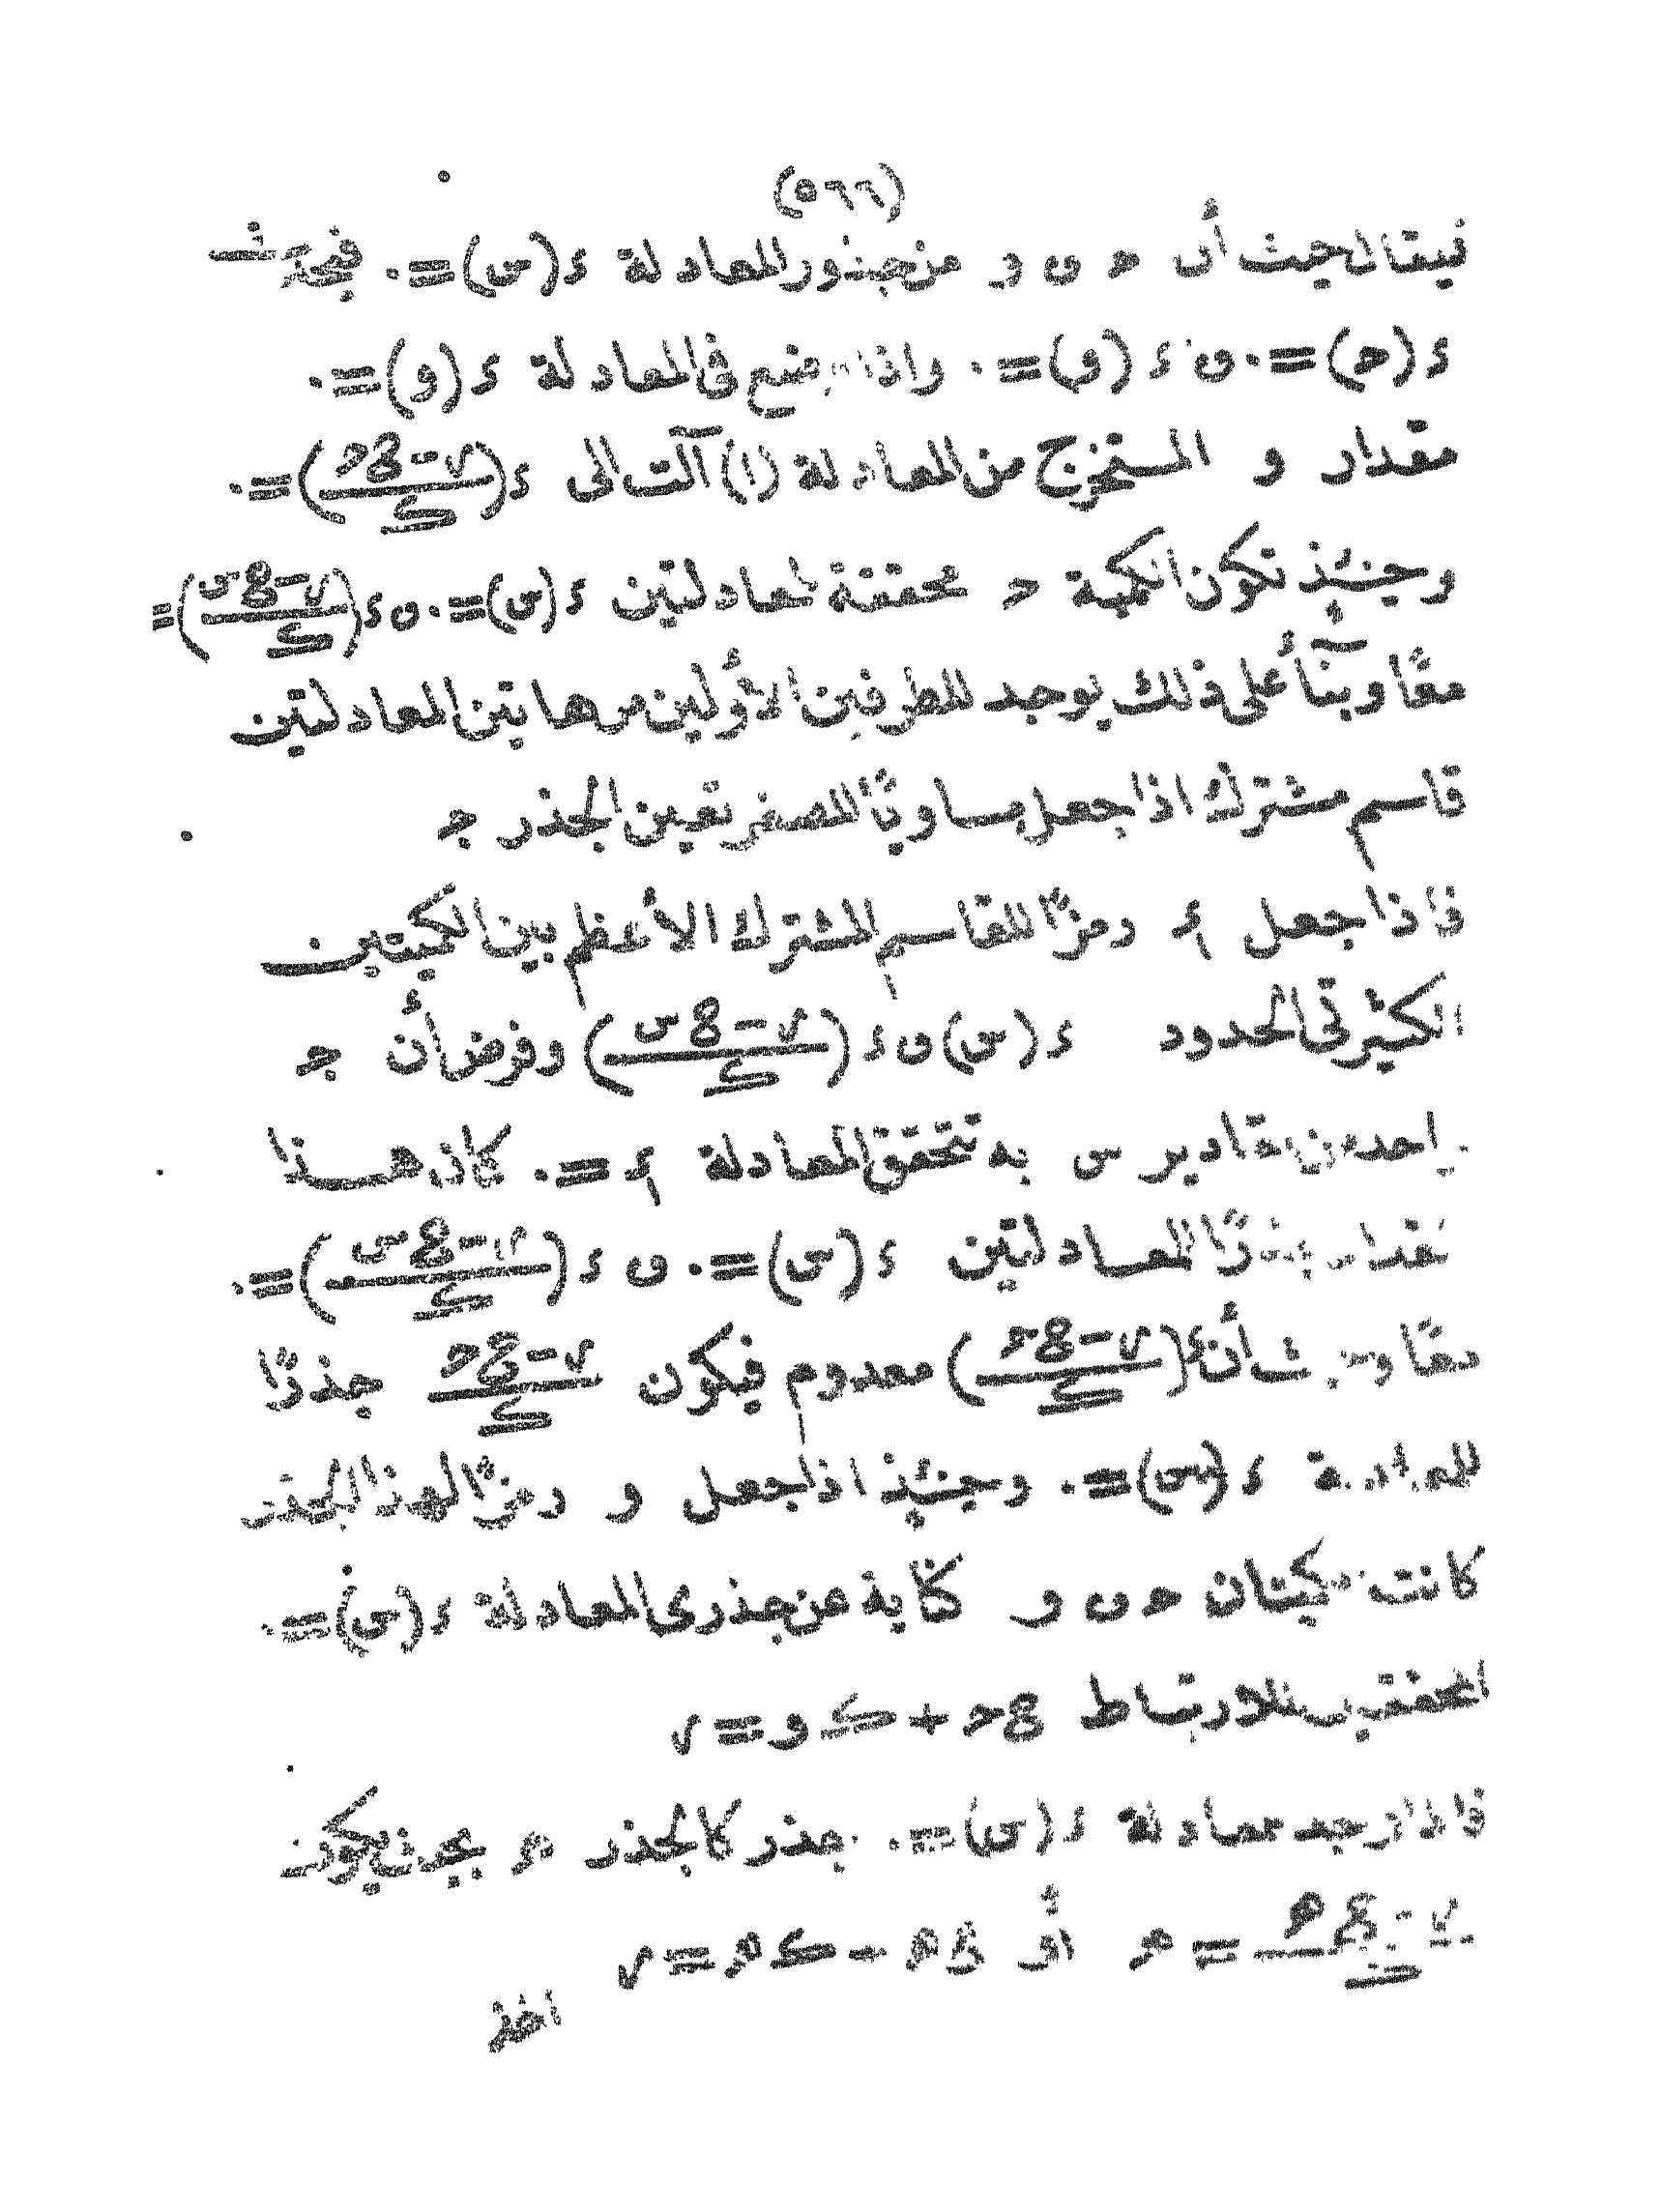 (٥٦٦)
فيقال حيث أن ح و و من جذور المعادلة ء (س) = ٠ فيحدث
ء (ح) = ٠ و ء (و) = ٠ واذا وضع فى المعادلة ء (و) = ٠
مقدار و المستخرج من المعادلة (١) آلت الى ء (<u>م-ع ح</u>/ك) = ٠
وحينئذ تكون الكمية ح محققة لمعادلتين ء (س) = ٠ و ء (<u>م-ع س</u>/ك) =
معًا وبنآأ على ذلك يوجد للطرفين الأولين من هاتين المعادلتين
قاسم مشترك اذا جعل مساويًا للصفر تعين الجذر ح
فاذا جعل ء رمزًا للقاسم المشترك الأعظم بين الكميتين
الكثيرتى الحدود ء (س) و ء (<u>م-ع س</u>/ك) وفرض أن ح
احد مقادير س به تتحقق المعادلة ء = ٠ كان هذا
المقدار جذرًا لمعادلتين ء (س) = ٠ و ء (<u>م-ع س</u>/ك) = ٠
معًا وحيث أن ء (<u>م-ع ح</u>/ك) معدوم فيكون <u>م-ع ح</u>/ك جذرًا
للمعادلة ء (س) = ٠ وحينئذ اذا جعل و رمزًا لهذا الجذر
كانت كميتان ح و و كناية عن جذرى المعادلة ء (س) = ٠
المحققين للارتباط ع ح + ك و = م
فاذا وجد لمعادلة ء (س) = ٠ جذر كالجذر ھ بحيث يكون
<u>م-ع ھ</u>/ك = ھ أو ع ھ + ك ھ = م
اخذ